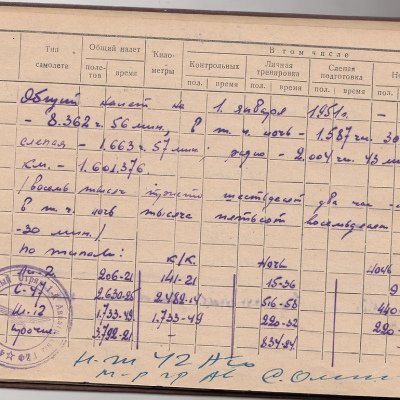 В том числе
Тип самолета
Общий налет
Кило-метры
Контрольных
Личная тренировка
Слепая подготовка
поле-тов
время
пол.
время
пол.
время
пол.
время
пол.
Общий налет на 1. января 1951г. —
- 8.362 ч. 56 мин. в т. ч. ночь - 1.587 ч. 30
слепая - 1.663 ч. 57 мин; радио - 2.004 ч. 43 мин
км. - 1.601.376
/восемь тысяч триста шестьдесят два час
в т.ч. ночь тысяча пятьсот восемьдесят
-30 мин./
по типам: к/к. ночь ночь
206-21 141-21 15-36
С-47 2.630-25 2.482-14 516-58 440-
Ил-12 1.733-49 1.733-49 220-32 220-
прочие 3.792-21 — 834-24